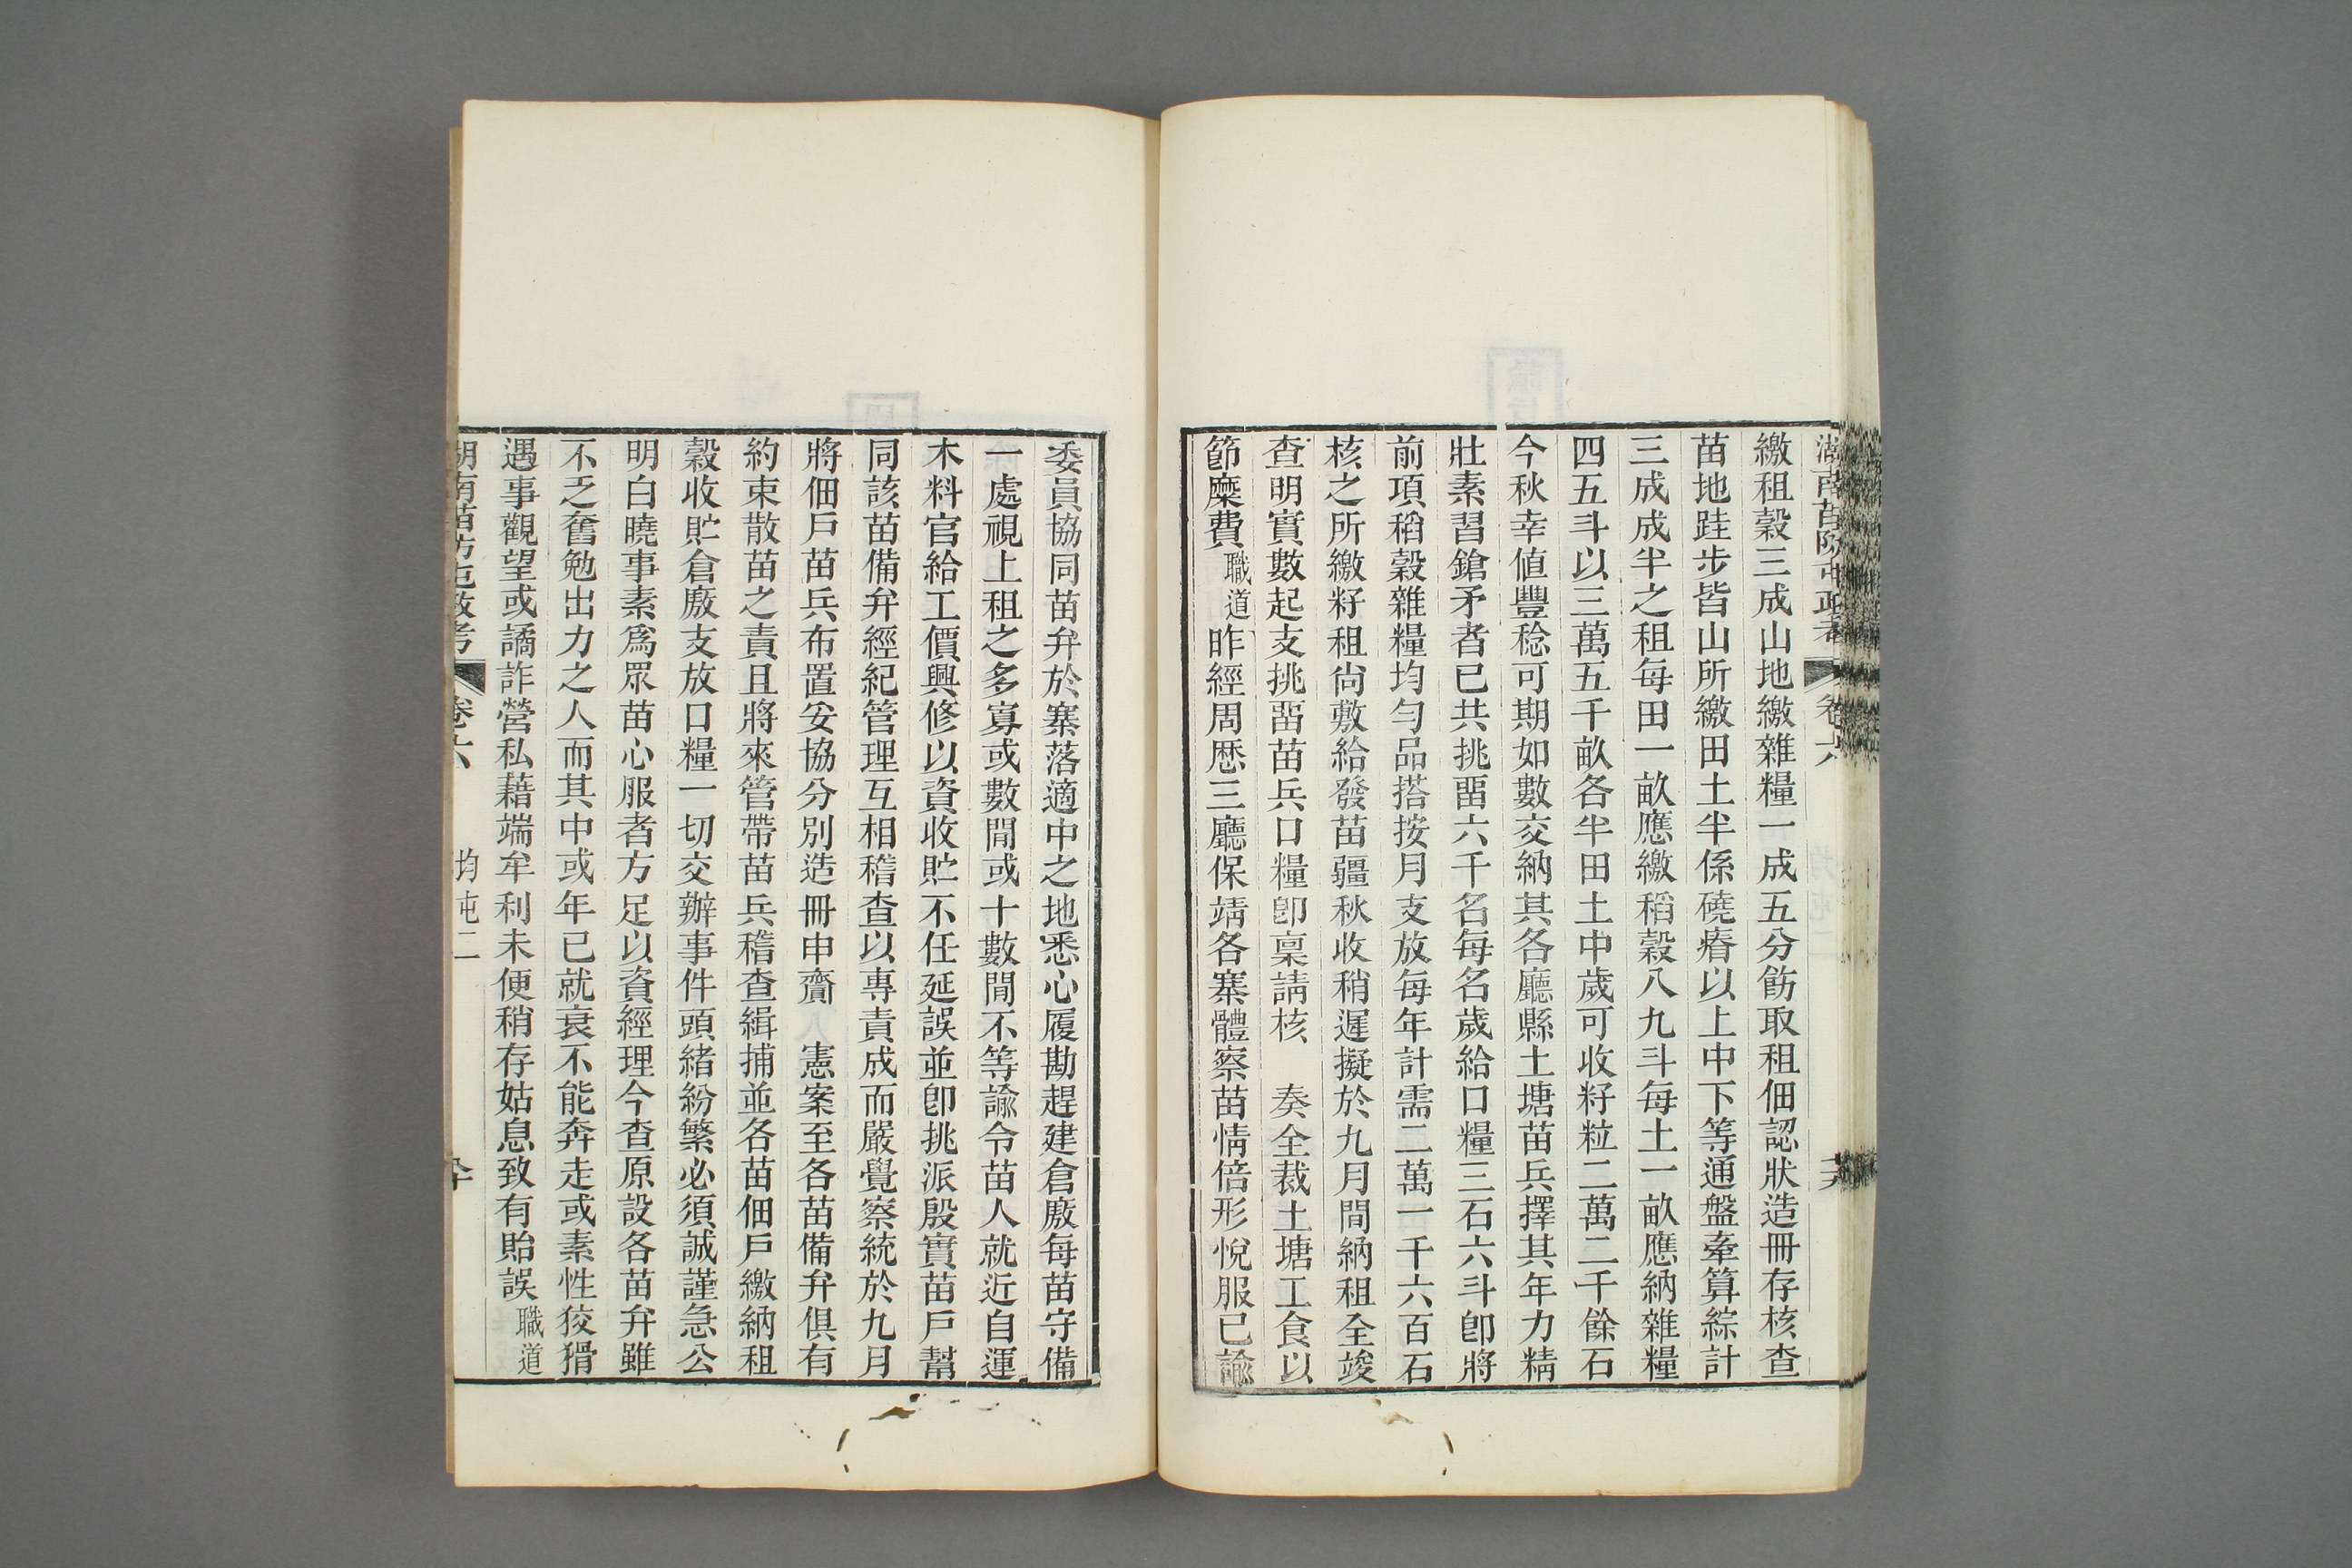 湖南苗防屯政考
卷六
繳租穀三成山地繳雜糧一成五分飭取租佃認狀造冊存核查
苗地跬步皆山所繳田土半係磽瘠以上中下等通盤牽算綜計
三成成半之租每田一畝應繳稻穀八九斗每土一畝應納雜糧
四五斗以三萬五千畝各半田土中歲可收籽粒二萬二千餘石
今秋幸值豐稔可期如數交納其各廳縣土塘苗兵擇其年力精
壯素習鎗矛者已共挑畱六千名每名歲給口糧三石六斗卽將
前項稻穀雜糧均勻品搭按月支放每年計需二萬一千六百石
核之所繳籽租尙敷給發苗疆秋收稍遲擬於九月間納租全竣
查明實數起支挑畱苗兵口糧卽稟請核　奏全裁土塘工食以
節糜費職道昨經周歷三廳保靖各寨體察苗情倍形悅服已諭
委員協同苗弁於寨落適中之地悉心履勘趕建倉廒每苗守備
一處視上租之多寡或數間或十數間不等諭令苗人就近自運
木料官給工價興修以資收貯不任延誤並卽挑派殷實苗戶幫
同該苗備弁經紀管理互相稽查以專責成而嚴覺察統於九月
將佃戶苗兵布置妥協分別造冊申齎　憲案至各苗備弁俱有
約束散苗之責且將來管帶苗兵稽查緝捕並各苗佃戶繳納租
穀收貯倉廒支放口糧一切交辦事件頭緒紛繁必須誠謹急公
明白曉事素爲眾苗心服者方足以資經理今查原設各苗弁雖
不乏奮勉出力之人而其中或年已就衰不能奔走或素性狡猾
遇事觀望或譎詐營私藉端牟利未便稍存姑息致有貽誤職道
湖南苗防屯政考
卷六
均屯二